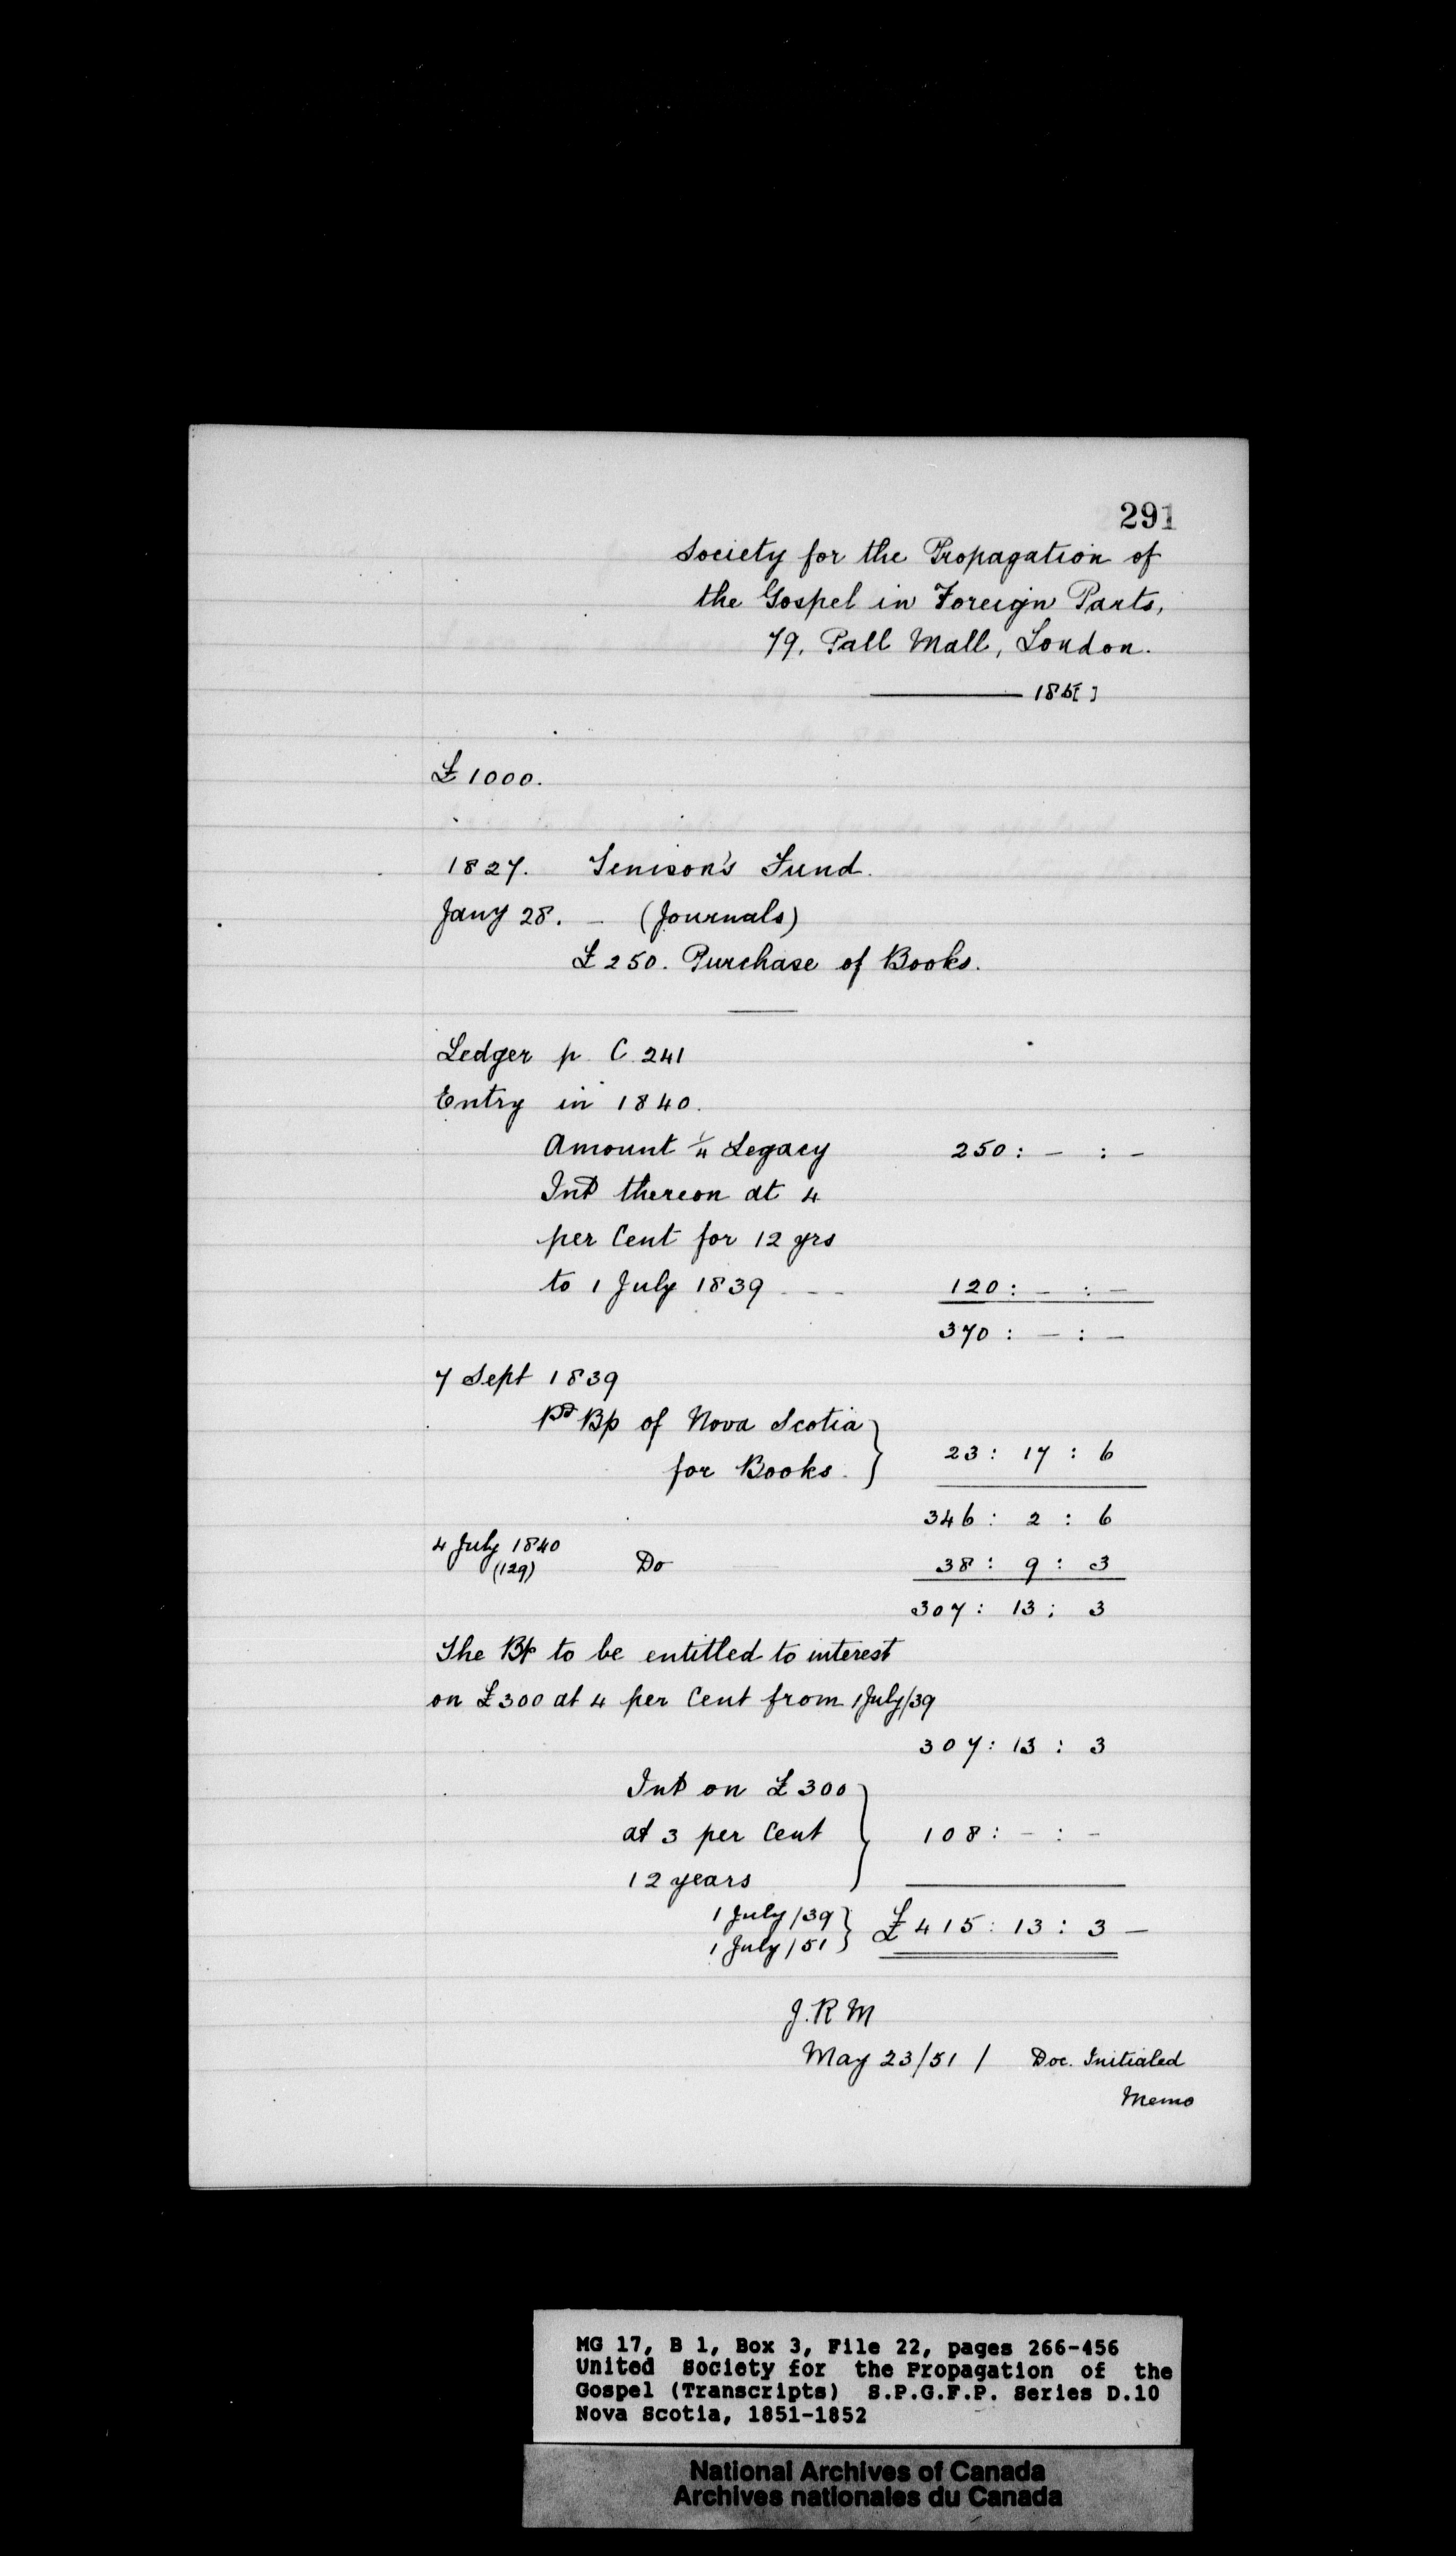 291
Society for the Propagation of
the Gospel in Foreign Parts,
79, Pall Mall, London.
——— 185[ ]
£1000.
1827. Tenison's Fund.
Jany 28. – (Journals)
£250. Purchase of Books.
Ledger p. C. 241
Entry in 1840.
Amount ¼ Legacy 250 : – : –
Int thereon at 4
per Cent for 12 yrs
to 1 July 1839 - - - 120 : – : –
370 : – : –
7 Sept 1839
Pd Bp of Nova Scotia
for Books. } 23 : 17 : 6
346 : 2 : 6
4 July 1840
(129) Do 38 : 9 : 3
307 : 13 : 3
The Bp to be entitled to interest
on £300 at 4 per Cent from 1 July/39
307 : 13 : 3
Int on £300
at 3 per Cent } 108 : – : –
12 years
1 July/39
1 July/51 } £415 : 13 : 3 –
J. R M
May 23/51 / Doc. Initialed
Memo
MG 17, B 1, Box 3, File 22, pages 266-456
United Society for the Propagation of the
Gospel (Transcripts) S.P.G.F.P. Series D.10
Nova Scotia, 1851-1852
National Archives of Canada
Archives nationales du Canada